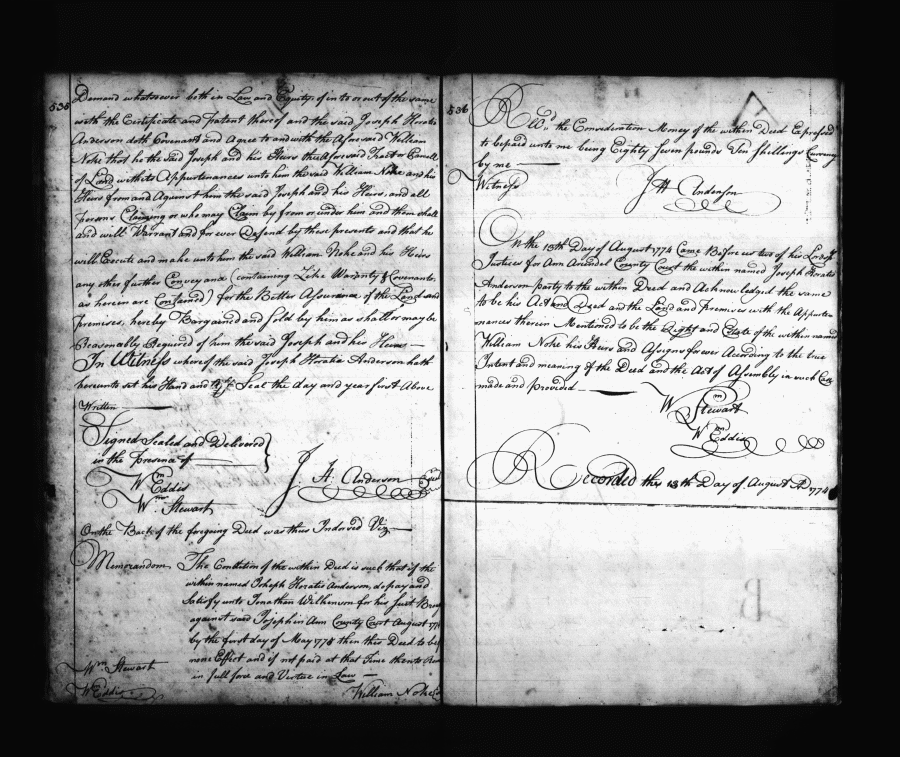 535
Demand whatsoever both in Law and Equity of in to or out of the same
with the Certificate and Patent thereof and the said Joseph Horatio
Anderson doth Covenant and Agree to and with the Aforesaid William
Noke that he the said Joseph and his Heirs the Aforesaid Tract or Parcell
of Land with its Appurtenances unto him the said William Noke and his
Heirs from and Against him the said Joseph and his Heirs, and all
Persons Claiming or who may Claim by from or under him and them shall
and will Warrant and for ever Defend by these presents and that he
will Execute and make unto him the said William Noke and his Heirs
any other further Conveyance (containing Like Warranty & Covenants
as herein are Contained) for the Better Assurance of the Land and
premises, hereby Bargained and Sold by him as shall or may be
Reasonably Required of him the said Joseph and his Heirs
In Witness whereof the said Joseph Horatio Anderson hath
hereunto set his Hand and Seal the day and year first Above
Written
Signed Sealed and Delivered
in the Presence of
Wm Eddis
Wm Stewart
J. H. Anderson Seal
On the Back of the foregoing Deed was thus Indorsed Viz
Memorandom The Condition of the within Deed is such that if the
within named Joheph Horatio Anderson, do pay and
Satisfy unto Jonathan Wilkinson for his Just
against said Joseph in Ann County Court August
by the first day of May 1775 then this Deed to be
none Effect and if not paid at that Time then to
in full force and Vertue in Law
Wm Stewart
W Eddis
William Noke
536
Recd the Consideration Money of the within Deed Expressed
to be paid unto me being Eighty Seven pounds Ten Shillings Currency
by me
Witness
J H Anderson
On the 13th Day of August 1774 Came Before us two of his Lordsps
Justices for Ann Arundel County Court the within named Joseph Horatio
Anderson party to the within Deed and Acknowledged the same
to be his Act and Deed and the Land and Premises with the Appurte
nances therein Mentioned to be the Right and Estate of the within named
William Noke his Heirs and Assigns forever According to the true
Intent and meaning of the Deed and the Act of Assembly in such Case
made and provided
Wm Stewart
Wm Eddis
Recorded this 13th Day of August AD 1774